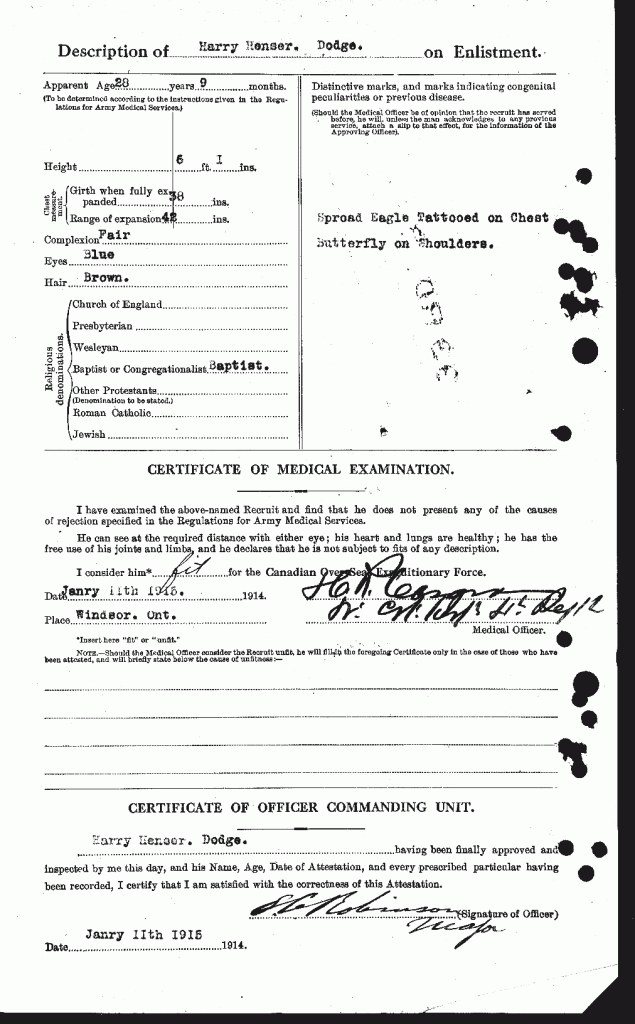 Description of Harry Henser. Dodge. on Enlistment.
Apparent Age 28 years 9 months.
(To be determined according to the instructions given in the Regulations for Army Medical Services.)
Height 6 ft. 1 ins.
Chest measurement.
Girth when fully expanded 38 ins.
Range of expansion 42 ins.
Complexion Fair
Eyes Blue
Hair Brown.
Religious denominations.
Church of England
Presbyterian
Wesleyan
Baptist or Congregationalist Baptist.
Other Protestants
(Denomination to be stated.)
Roman Catholic
Jewish
Distinctive marks, and marks indicating congenital
peculiarities or previous disease.
(Should the Medical Officer be of opinion that the recruit has served
before, he will, unless the man acknowledges to any previous
service, attach a slip to that effect, for the information of the
Approving Officer).
Spread Eagle Tattooed on Chest
Butterfly on Shoulders.
CERTIFICATE OF MEDICAL EXAMINATION.
I have examined the above-named Recruit and find that he does not present any of the causes
of rejection specified in the Regulations for Army Medical Services.
He can see at the required distance with either eye; his heart and lungs are healthy; he has the
free use of his joints and limbs, and he declares that he is not subject to fits of any description.
I consider him* fit for the Canadian Over-Seas Expeditionary Force.
Date Janry 11th 1915. 1914.
Place Windsor. Ont.
Medical Officer.
*Insert here "fit" or "unfit."
NOTE.—Should the Medical Officer consider the Recruit unfit, he will fill in the foregoing Certificate only in the case of those who have
been attested, and will briefly state below the cause of unfitness:—
CERTIFICATE OF OFFICER COMMANDING UNIT.
Harry Henser. Dodge. having been finally approved and
inspected by me this day, and his Name, Age, Date of Attestation, and every prescribed particular having
been recorded, I certify that I am satisfied with the correctness of this Attestation.
Robinson (Signature of Officer)
Major
Date Janry 11th 1915 1914.